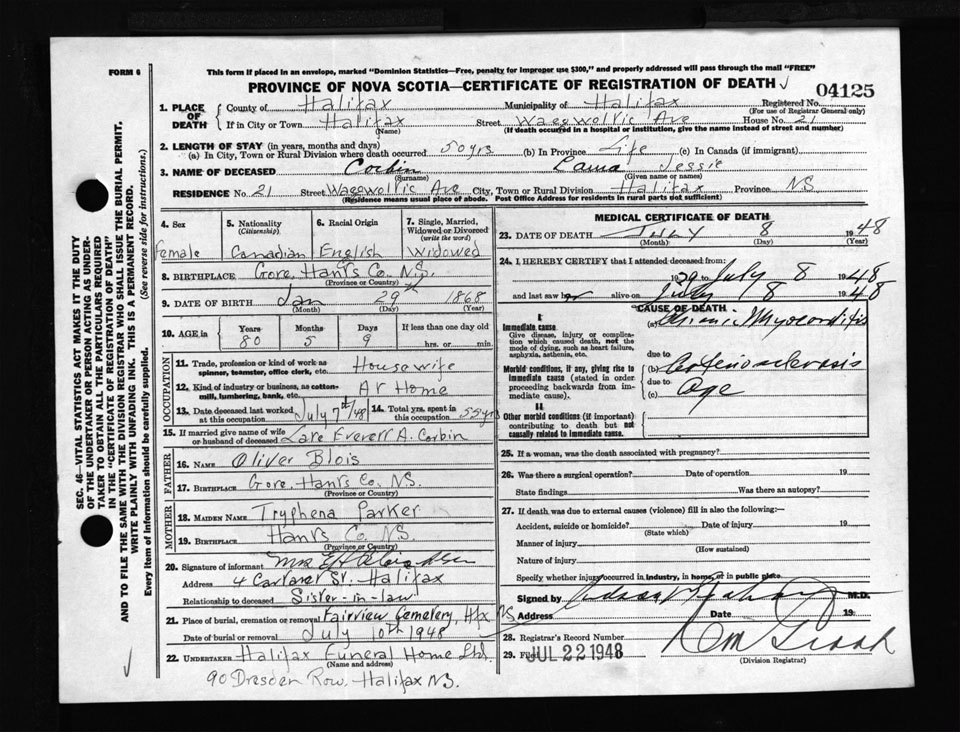 FORM 6
This form if placed in an envelope, marked "Dominion Statistics—Free, penalty for improper use $300," and properly addressed will pass through the mail "FREE"
PROVINCE OF NOVA SCOTIA—CERTIFICATE OF REGISTRATION OF DEATH ✓
04125
1. PLACE OF DEATH { County of Halifax Municipality of Halifax Registered No.
(For use of Registrar General only)
If in City or Town Halifax Street Waegwoltic Ave House No. 21
(Name) (If death occurred in a hospital or institution, give the name instead of street and number)
2. LENGTH OF STAY (in years, months and days)
(a) In City, Town or Rural Division where death occurred 50 yrs. (b) In Province Life (c) In Canada (if immigrant)
3. NAME OF DECEASED Corbin Laura Jessie
(Surname) (Given name or names)
RESIDENCE No. 21 Street Waegwoltic Ave City, Town or Rural Division Halifax Province NS
(Residence means usual place of abode. Post Office Address for residents in rural parts not sufficient)
4. Sex 5. Nationality (Citizenship) 6. Racial Origin 7. Single, Married, Widowed or Divorced (write the word)
Female Canadian English Widowed
8. BIRTHPLACE Gore, Hants Co. N.S.
(Province or Country)
9. DATE OF BIRTH Jan 29th 1868
(Month) (Day) (Year)
10. AGE in Years Months Days If less than one day old
80 5 9 hrs. or min.
OCCUPATION
11. Trade, profession or kind of work as spinner, teamster, office clerk, etc. Housewife
12. Kind of industry or business, as cotton-mill, lumbering, bank, etc. At Home
13. Date deceased last worked at this occupation July 7th/48 14. Total yrs. spent in this occupation 55 yrs
15. If married give name of wife or husband of deceased Late Everett A. Corbin
FATHER
16. NAME Oliver Blois
17. BIRTHPLACE Gore, Hants Co. NS.
(Province or Country)
MOTHER
18. MAIDEN NAME Tryphena Parker
19. BIRTHPLACE Hants Co. NS.
(Province or Country)
20. Signature of informant Mrs
Address 4 St. Halifax
Relationship to deceased Sister-in-law
21. Place of burial, cremation or removal Fairview Cemetery, Hfx NS
Date of burial or removal July 10th 1948
22. UNDERTAKER Halifax Funeral Home Ltd.
(Name and address)
90 Dresden Row, Halifax NS.
MEDICAL CERTIFICATE OF DEATH
23. DATE OF DEATH July 8 1948
(Month) (Day) (Year)
24. I HEREBY CERTIFY that I attended deceased from:
1929 to July 8 1948
and last saw her alive on July 8 1948
CAUSE OF DEATH
I
Immediate cause (a) Chronic Myocarditis
Give disease, injury or complication which caused death, not the mode of dying, such as heart failure, asphyxia, asthenia, etc.
due to
Morbid conditions, if any, giving rise to immediate cause (stated in order proceeding backwards from immediate cause). (b) Arteriosclerosis
due to
(c) Age
II
Other morbid conditions (if important) contributing to death but not causally related to immediate cause.
25. If a woman, was the death associated with pregnancy?
26. Was there a surgical operation? Date of operation 19
State findings Was there an autopsy?
27. If death, was due to external causes (violence) fill in also the following:—
Accident, suicide or homicide? Date of injury 19
(State which)
Manner of injury
(How sustained)
Nature of injury
Specify whether injury occurred in industry, in home, or in public place.
Signed by M.D.
Address Date 19
28. Registrar's Record Number
29. Filed JUL 22 1948
(Division Registrar)
SEC. 46—VITAL STATISTICS ACT MAKES IT THE DUTY OF THE UNDERTAKER OR PERSON ACTING AS UNDERTAKER TO OBTAIN ALL THE PARTICULARS REQUIRED IN THE "CERTIFICATE OF REGISTRATION OF DEATH" AND TO FILE THE SAME WITH THE DIVISION REGISTRAR WHO SHALL ISSUE THE BURIAL PERMIT.
WRITE PLAINLY WITH UNFADING INK. THIS IS A PERMANENT RECORD.
Every Item of Information should be carefully supplied. (See reverse side for instructions.)
✓